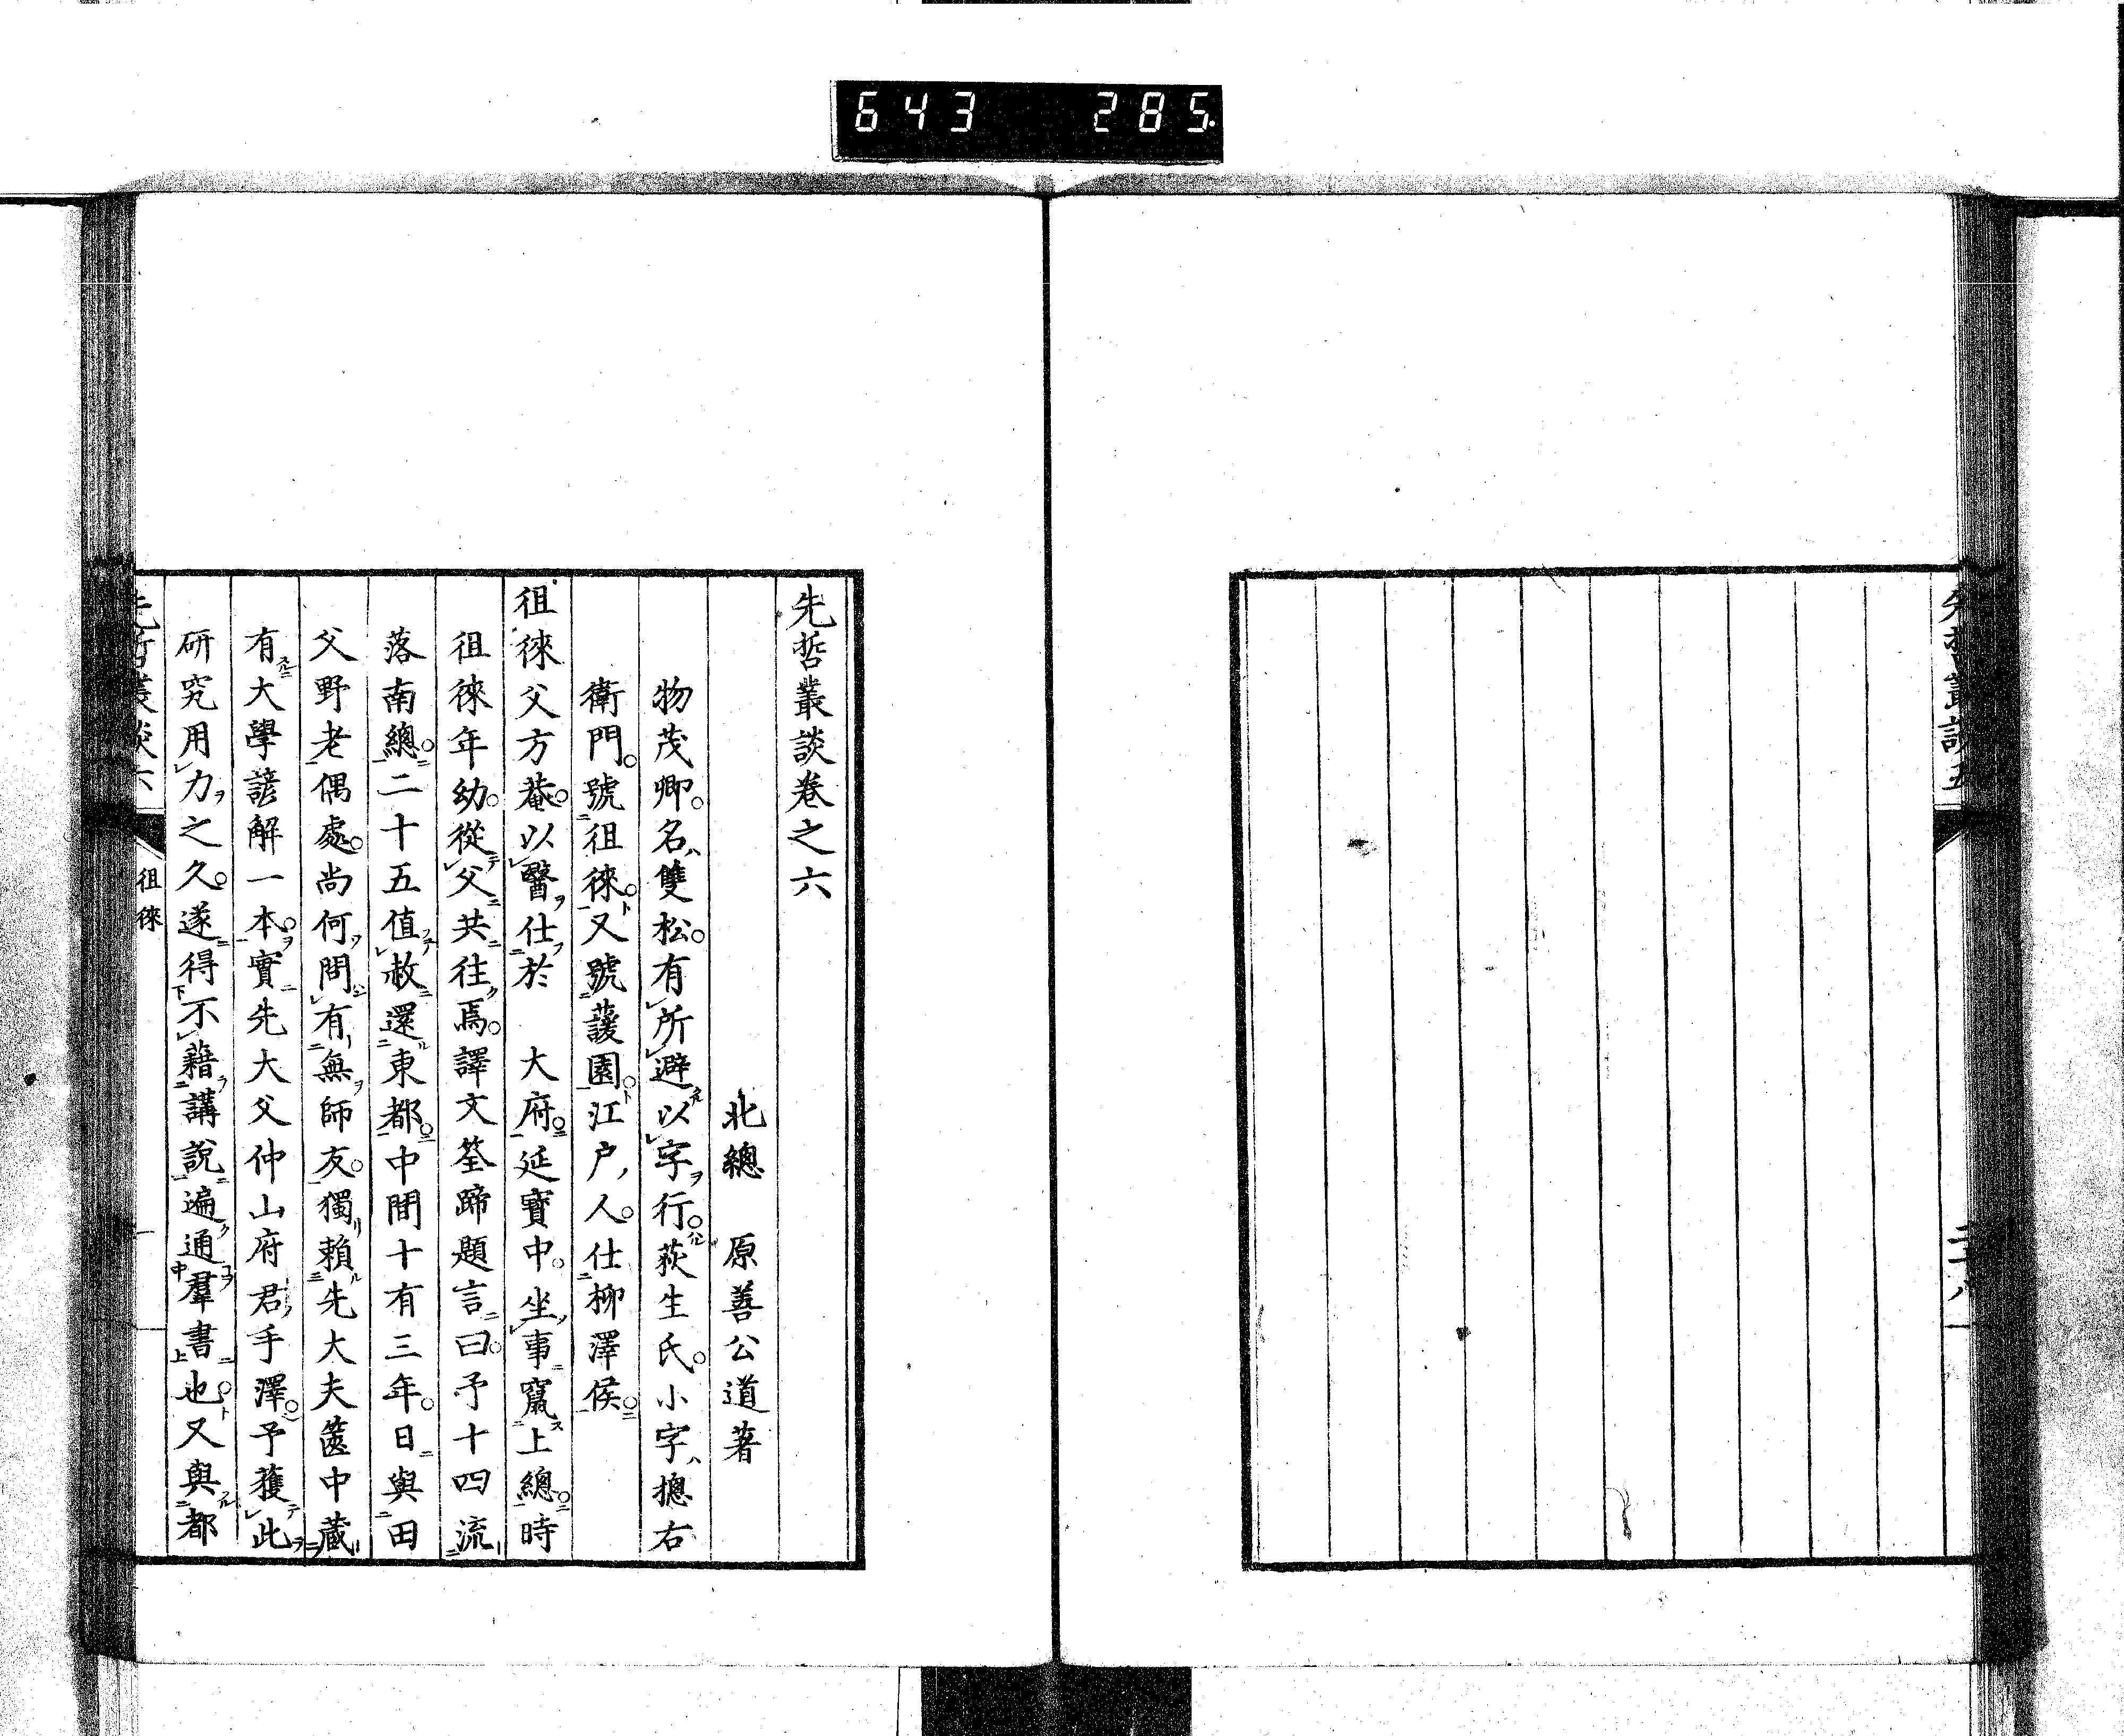 643 285
先哲叢談五
二十八
先哲叢談卷之六
北總 原善公道著
物茂卿名雙松有所避以字行荻生氏小字摠右
衛門號徂徠又號蘐園江戸人仕柳澤侯
徂徠父方菴以醫仕於 大府延寶中坐事竄上總時
徂徠年幼從父共往焉譯文筌蹄題言曰予十四流
落南總二十五值赦還東都中間十有三年日與田
父野老偶處尚何問有無師友獨賴先大夫篋中藏
有大學諺解一本實先大父仲山府君手澤予獲此
研究用力之久遂得不藉講說遍通群書也又與都
先哲叢談六
徂徠